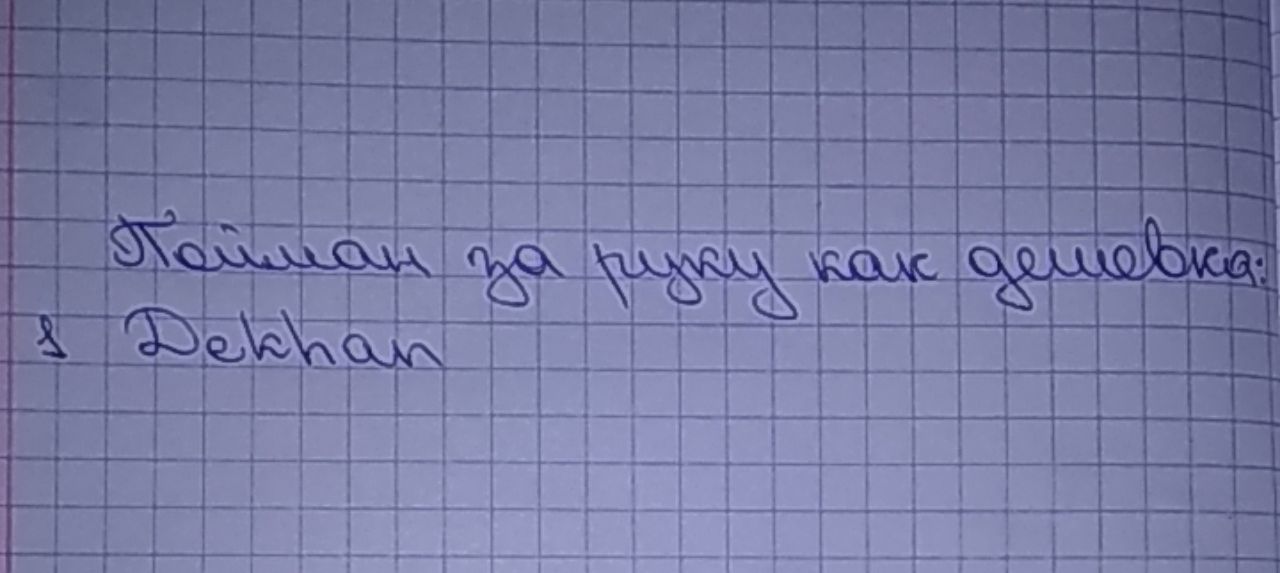 Пойман за руку как дешевка:
1 Dekhan